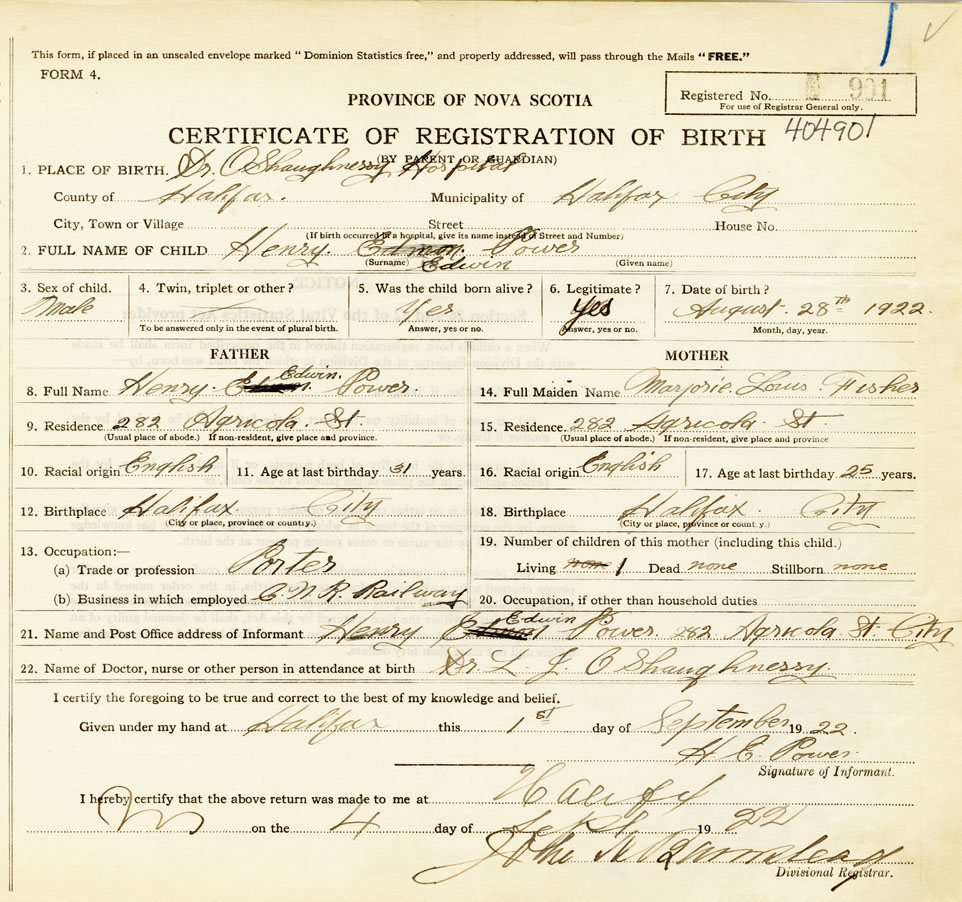 This form, if placed in an unsealed envelope marked "Dominion Statistics free," and properly addressed, will pass through the Mails "FREE."
FORM 4.
Registered No. 901
For use of Registrar General only.
PROVINCE OF NOVA SCOTIA
CERTIFICATE OF REGISTRATION OF BIRTH 404901
(BY PARENT OR GUARDIAN)
1. PLACE OF BIRTH. Dr. O'Shaughnessy Hospital
County of Halifax. Municipality of Halifax City
City, Town or Village Street House No.
(If birth occurred in a hospital, give its name instead of Street and Number)
2. FULL NAME OF CHILD Henry. Edmon. Power
(Surname) Edwin (Given name)
3. Sex of child. 4. Twin, triplet or other? 5. Was the child born alive? 6. Legitimate? 7. Date of birth?
Male Yes Yes August. 28th 1922.
To be answered only in the event of plural birth. Answer, yes or no. Answer, yes or no. Month, day, year.
FATHER
8. Full Name Henry. Edwin. Power.
9. Residence 282 Agricola. St.
(Usual place of abode.) If non-resident, give place and province.
10. Racial origin English 11. Age at last birthday 31 years.
12. Birthplace Halifax City
(City or place, province or country.)
13. Occupation:—
(a) Trade or profession Porter
(b) Business in which employed C.N.R. Railway
MOTHER
14. Full Maiden Name Marjorie. Louis. Fisher
15. Residence 282 Agricola. St.
(Usual place of abode.) If non-resident, give place and province
16. Racial origin English 17. Age at last birthday 25 years.
18. Birthplace Halifax City
(City or place, province or country.)
19. Number of children of this mother (including this child.)
Living none 1 Dead none Stillborn none
20. Occupation, if other than household duties
21. Name and Post Office address of Informant Henry Edwin Power. 282 Agricola St. City
22. Name of Doctor, nurse or other person in attendance at birth Dr. L. J. O'Shaughnessy.
I certify the foregoing to be true and correct to the best of my knowledge and belief.
Given under my hand at Halifax this 1st day of September 1922.
H. E. Power.
Signature of Informant.
I hereby certify that the above return was made to me at Halifax
on the 4 day of Sept 1922
John
Divisional Registrar.